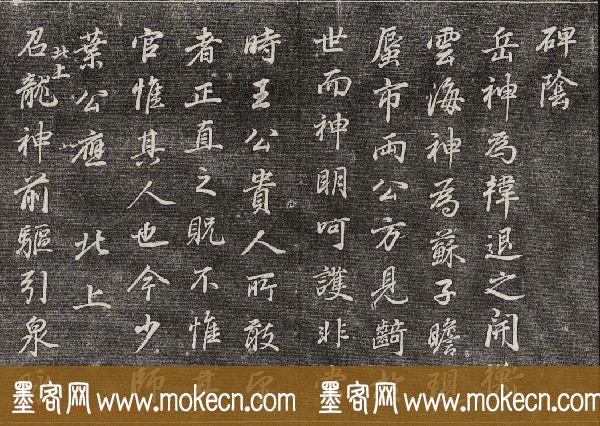 碑陰
岳神為韓退之開衡
雲海神為蘇子瞻現
蜃市兩公方見齮
世而神明呵護非
時王公貴人所敢
者正直之貺不惟
官惟其人也今少師
葉公應 北上
北上
召龍神前驅引泉
墨客网 www.mokecn.com 墨客网 www.mokecn.com